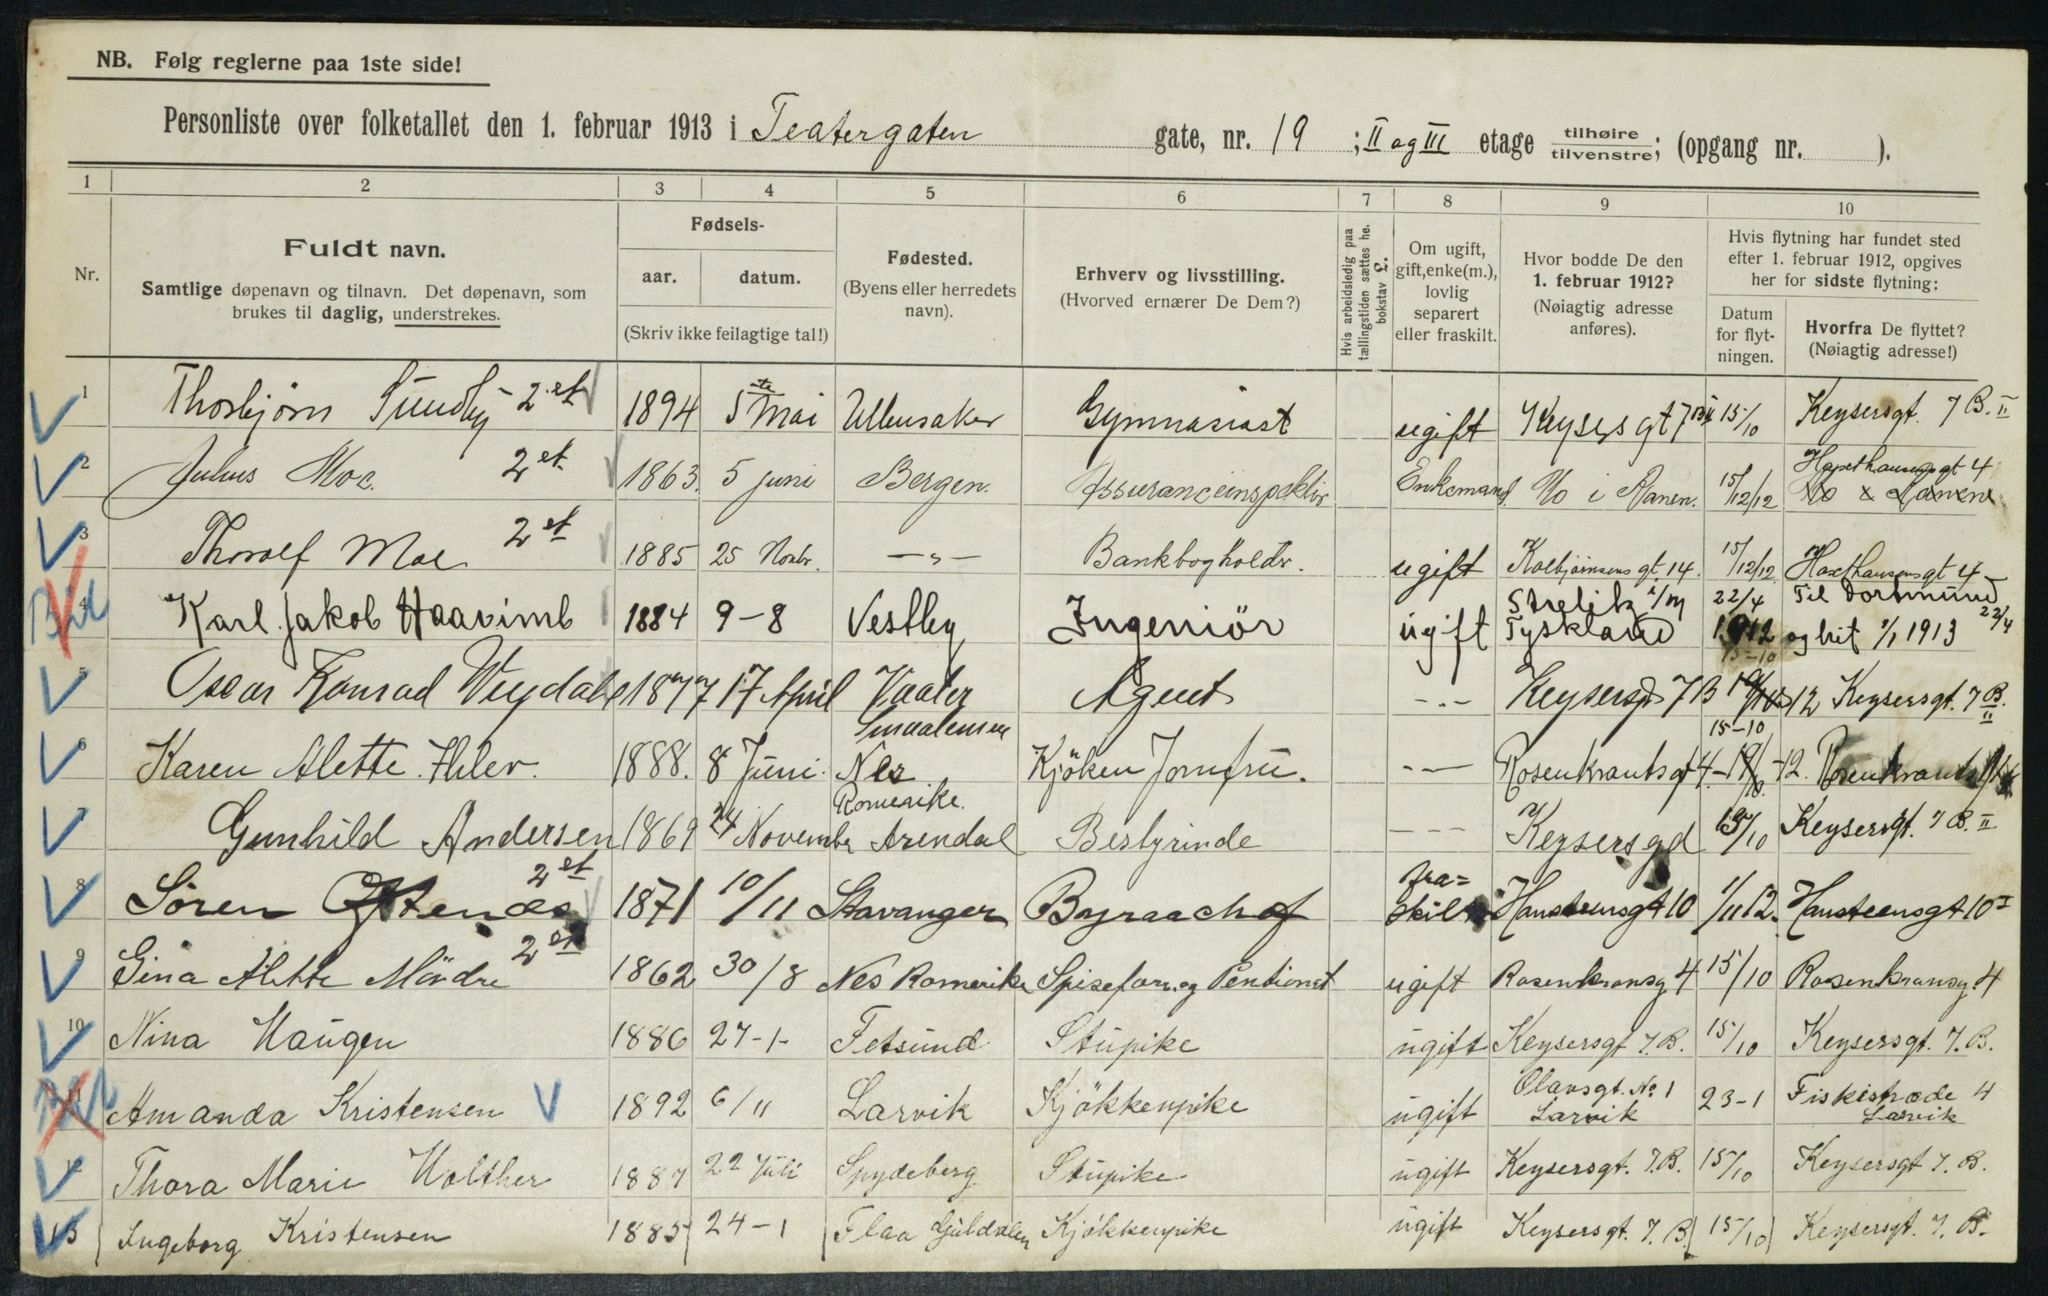 NB. Følg reglerne paa 1ste side!
Personliste over folketallet den 1. februar 1913 i Teatergaten gate, nr. 19 ; II og III etage tilhøire/tilvenstre; (opgang nr. ).
1 2 3 4 5 6 7 8 9 10
Nr.
Fuldt navn.
Samtlige døpenavn og tilnavn. Det døpenavn, som
brukes til daglig, understrekes.
Fødsels-
aar. datum.
(Skriv ikke feilagtige tal!)
Fødested.
(Byens eller herredets
navn).
Erhverv og livsstilling.
(Hvorved ernærer De Dem?)
Hvis arbeidsledig paa
tællingstiden sættes he.
bokstav L.
Om ugift,
gift, enke(m.),
lovlig
separert
eller fraskilt.
Hvor bodde De den
1. februar 1912?
(Nøiagtig adresse
anføres).
Hvis flytning har fundet sted
efter 1. februar 1912, opgives
her for sidste flytning:
Datum
for flyt-
ningen.
Hvorfra De flyttet?
(Nøiagtig adresse!)
1 Thorbjørn Sundby 2 et 1894 5te Mai Ullensaker Gymnasiast ugift Keysersgt 7 B II 15/10 Keysersgt. 7 B. II
2 Julius Moe. 2 et 1863. 5 juni Bergen. Assuranceinspektør Enkemand. Mo i Ranen. 15/12/12 Haxthausensgt 4
3 Thorolf Moe 2 et 1885 25 Novbr. —„— Bankbogholdr. ugift Kolbjørnsens gt. 14. 15/12/12 Haxthausensgt 4
4 Karl Jakob Haavimb 1884 9-8 Vestby Ingeniör ugift Strelitz i/M Tyskland 22/4 1912 Til Dortmund 22/4 og hit 1/1 1913
5 Oscar Konrad Weydahl 1877 17 April Vaaler Smaalenene Agent -„- Keysersgd 7 B 15-10 12 Keysersgt. 7 B. II
6 Karen Alette Ihlev. 1888. 8 Juni. Nes Romerike. Kjöken Jomfru. -„- Rosenkrantsgt 4 15-10 -12. Rosenkrantsgt
7 Gunhild Andersen 1869 24 November Arendal Bestyrinde --- Keysersgd 15/10 Keysersgt. 7 B. II
8 Sören Oftenæs 2 et 1871 10/11 Stavanger Byraachef fra=skilt Hansteensgt 10 1/11 12. Hansteensgt 10 I
9 Gina Alette Mördre 2 et 1862 30/8 Nes Romerike Spiseforr. og Pentionat ugift Rosenkransg 4 15/10 Rosenkransg. 4
10 Nina Haugen 1886 27-1- Fetsund Stupike ugift Keysersgt 7. B. 15/10 Keysersgt. 7. B.
11 Amanda Kristensen 1892 6/11 Larvik Kjökkenpike ugift Olavsgt. No 1 Larvik 23-1 Fiskistræde 4 Larvik
12 Thora Marie Wolther 1887 22 Juli Spydeberg Stupike ugift Keysersgt. 7. B. 15/10 Keysersgt 7. B.
13 Ingeborg Kristensen 1885 24-1 Flaa Guldalen Kjökkenpike ugift Keysersgt. 7. B. 15/10 Keysersgt. 7. B.